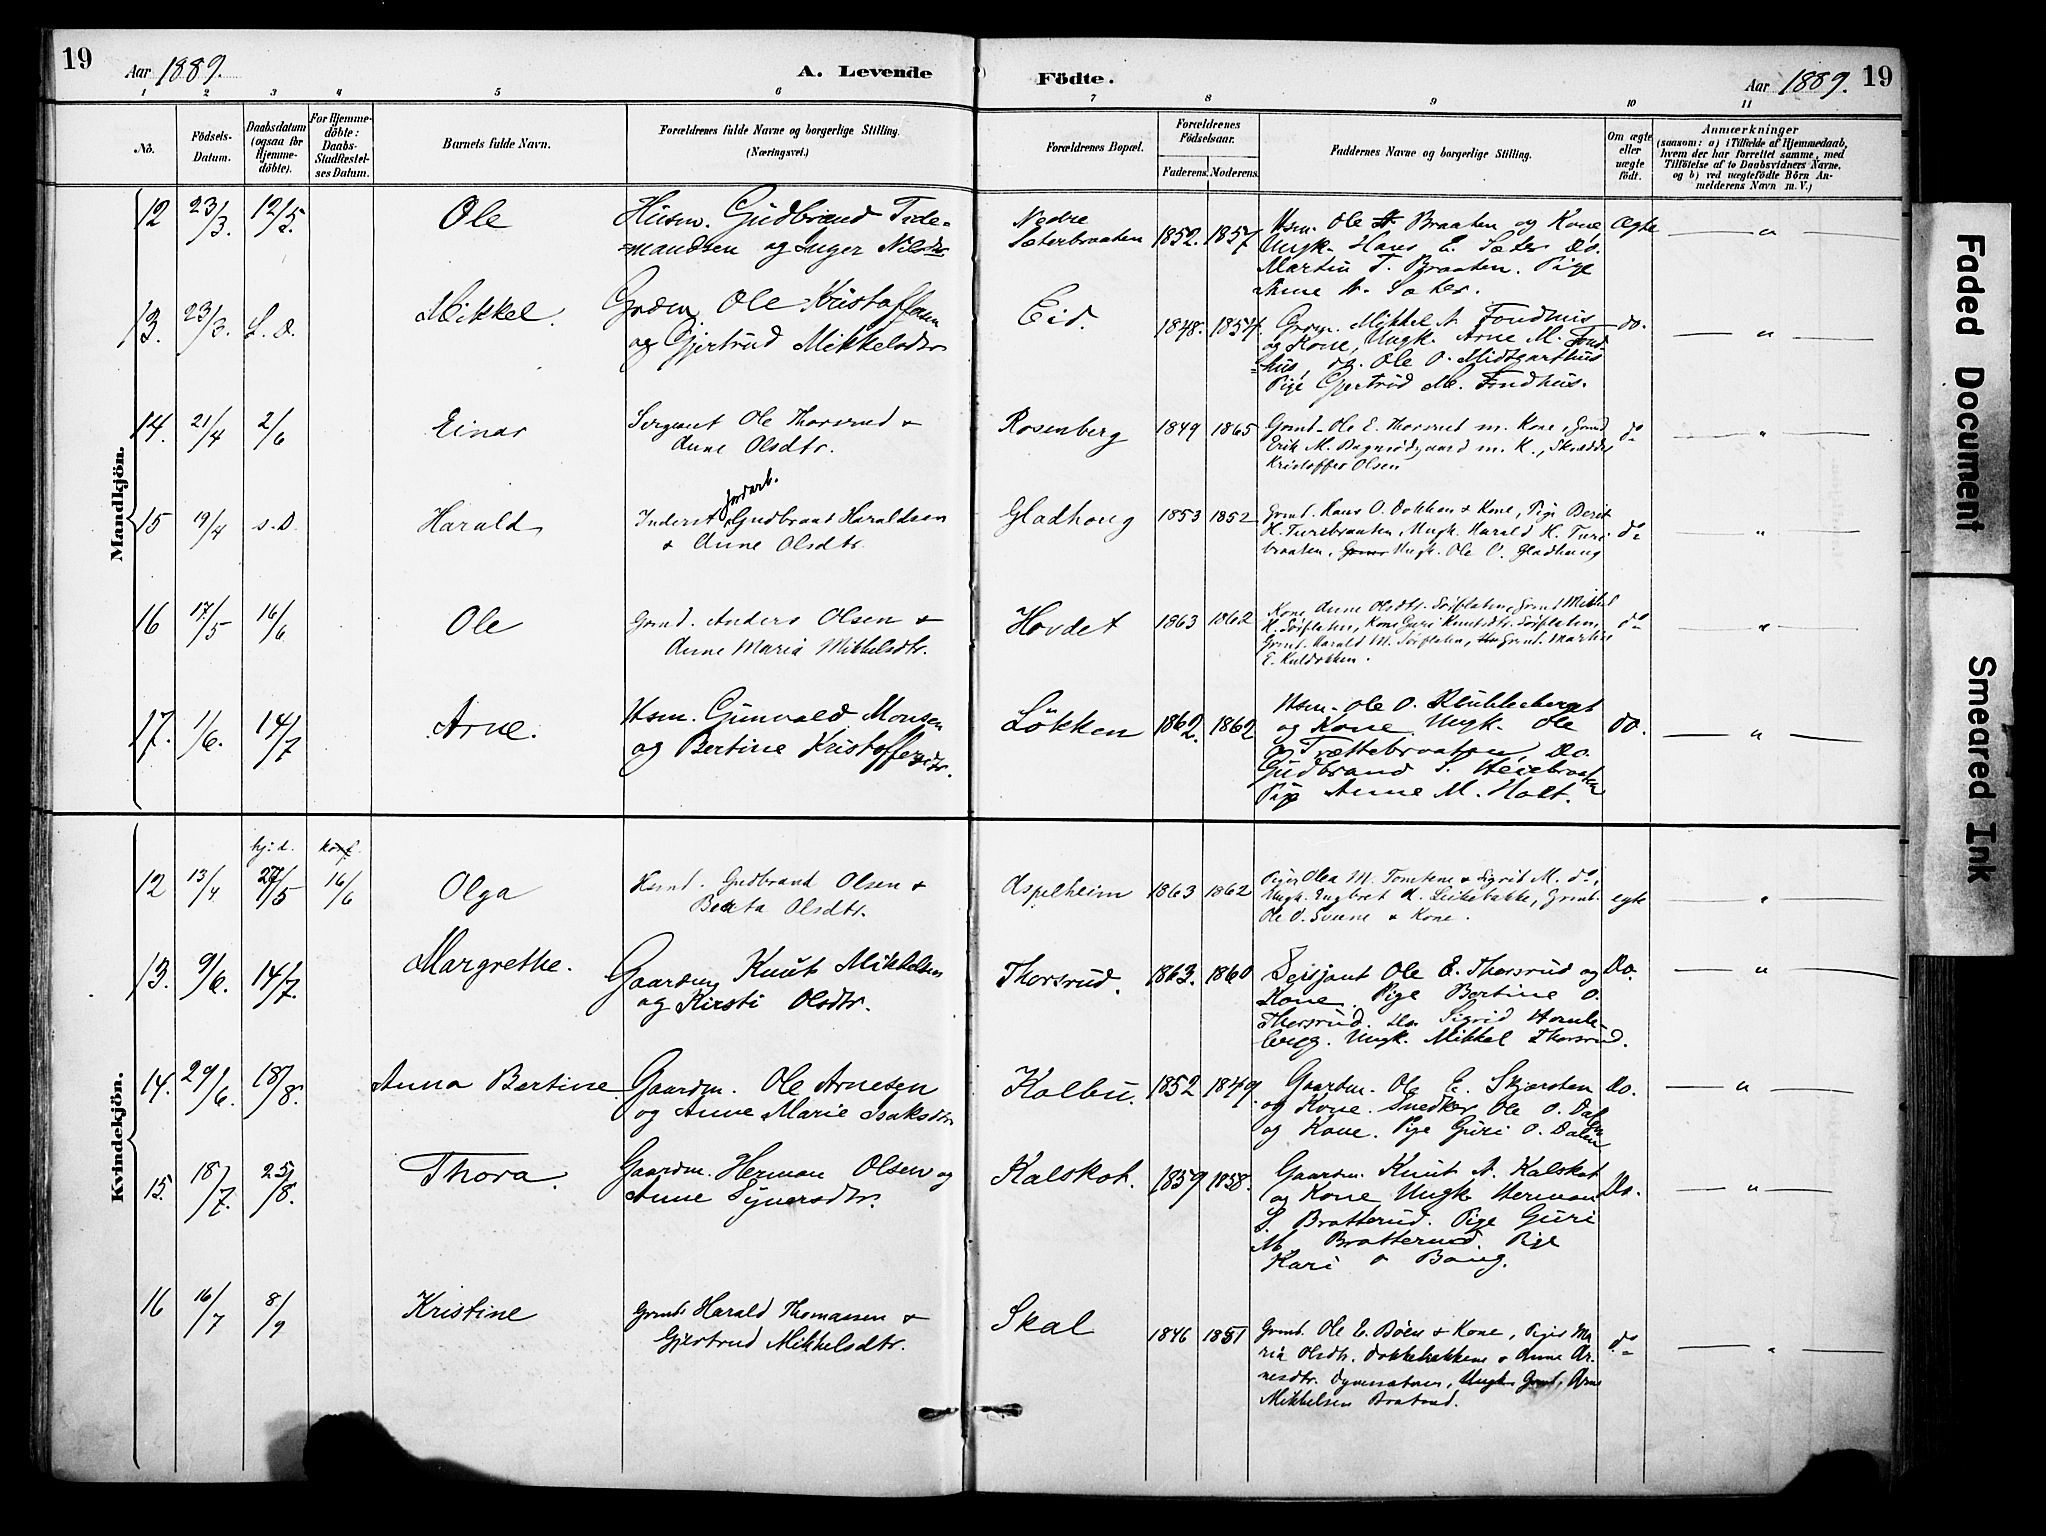 19
Aar 1889.
A. Levende
Födte.
Aar 1889.
19
1 2 3 4 5 6 7 8 9 10 11
No.
Födsels-Datum.
Daabsdatum (ogsaa for Hjemmedöbte).
For Hjemmedöbte: Daabs-Stadfestelses Datum.
Barnets fulde Navn.
Forældrenes fulde Navne og borgerlige Stilling.
(Næringsvei.)
Forældrenes Bopæl.
Forældrenes Födselsaar.
Faderens. Moderens.
Faddernes Navne og borgerlige Stilling.
Om ægte eller uægte födt.
Anmærkninger
(saasom: a) i Tilfælde af Hjemmedaab,
hvem der har forrettet samme, med
Tilföielse af to Daabsvidners Navne,
og b) ved uægtefödte Börn Anmelderens Navn m. V.)
Mandkjön.
12 23/3. 12/5. Ole
Husm. Gudbrand Tidemandsen og Inger Nilsdr
Nedre Sæterbraaten 1852. 1857.
Hsm. Ole Braaten og Kone,
Ungk. Hans E. Sæter Do.
Martin T. Braaten. Pige
Anne Sæter.
Ægte
"
13. 23/3. S. D. Mikkel.
Grdm. Ole Kristoffersen
og Gjertrud Mikkelsdtr
Eid. 1848. 1854.
Grdm. Mikkel A. Fondhus
og Kone, Ungk. Arne M. Fondhus, do. Ole O. Midtgarthus
Pige Gjertrud M. Fondhus.
do.
"
14. 21/4 2/6 Einar
Sergeant Ole Thorsrud &
Anne Olsdtr.
Rosenberg 1849 1865
Grmd. Ole E. Thorsrud m. Kone, Grmd
Erik M. Bagnsödgaard m. K., Skrædder
Kristoffer Olsen
do
"
15 19/4 s. D. Harald
jordarb.
Inderst Gudbrand Haraldsen
& Anne Olsdtr.
Gladhoug 1853 1852
Grmd. Hans O. Dokken & Kone, Pige Berit
H. Turisbraaten, Ungk. Harald H. Turisbraaten, Ungk. Ole O. Gladhaug
do
"
16 17/5 16/6 Ole
Grmd. Anders Olsen &
Anne Maria Mikkelsdtr.
Hovdet 1863 1862
Kone Anne Olsdtr. Sörflaten, Grmd Mikkel
H. Sörflaten, Kone Guri Knutsdtr. Sörflaten,
Grmd. Harald M. Sörflaten, Grmd. Martin
E. Kuldokken.
do
"
17. 1/6. 14/7 Arne.
Hsm. Gunvald Monsen
og Bertine Kristoffersdtr.
Lökken 1862. 1862
Hsm. Ole O. Klubbeberget
og Kone, Ungk. Ole
O. Trættebraaten, Do.
Gudbrand S. Heiebraaten
Pige Anne M. Holt.
do.
"
Kvindekjön.
hj:d. konf.
12 13/4 27/5 16/6 Olga
Husmd. Gudbrand Olsen &
Berta Olsdtr.
Aspelheim 1863 1862
Piger Olea M. Tomtene & Sigrid M. do,
Ungk. Engbret A. Leikebakke, Grmd.
Ole O. Sveene & Kone.
egte
"
13. 9/6. 14/7. Margrethe.
Gaardm. Knut Mikkelsen
og Kirsti Olsdtr.
Thorsrud. 1863. 1860
Sersjant Ole E. Thorsrud og
Kone. Pige Bertine O.
Thorsrud. Do Sigrid Hamleberg. Ungk. Mikkel Thorsrud.
Do.
"
14. 29/6. 18/8. Anna Bertine
Gaardm. Ole Arnesen
og Anne Marie Isaksdtr
Kolbu. 1852 1849.
Gaardm. Ole E. Skjærsten
og Kone. Snedker Ole O. Dalen
og Kone. Pige Guri O. Dalen
Do.
"
15. 18/7. 25/8. Thora.
Gaardm. Herman Olsen og
Anne Syversdtr.
Kalskot. 1859 1858.
Gaardm. Knut A. Kalskot
og Kone Ungk Herman
S. Bratterud. Pige Guri
M. Bratterud. Pige
Kari O Bang.
Do.
"
16 16/7 8/9 Kristine
Grmd. Harald Thomassen &
Gjertrud Mikkelsdtr.
Skal 1846 1851
Grmd. Ole E. Böen & Kone, Piger Maria Olsdtr. Dokkebakkene & Anne Arnesdtr. , Ungk. Grmd, Arne
Mikkelsen Bratrud.
do
"
Faded Document
Smeared Ink